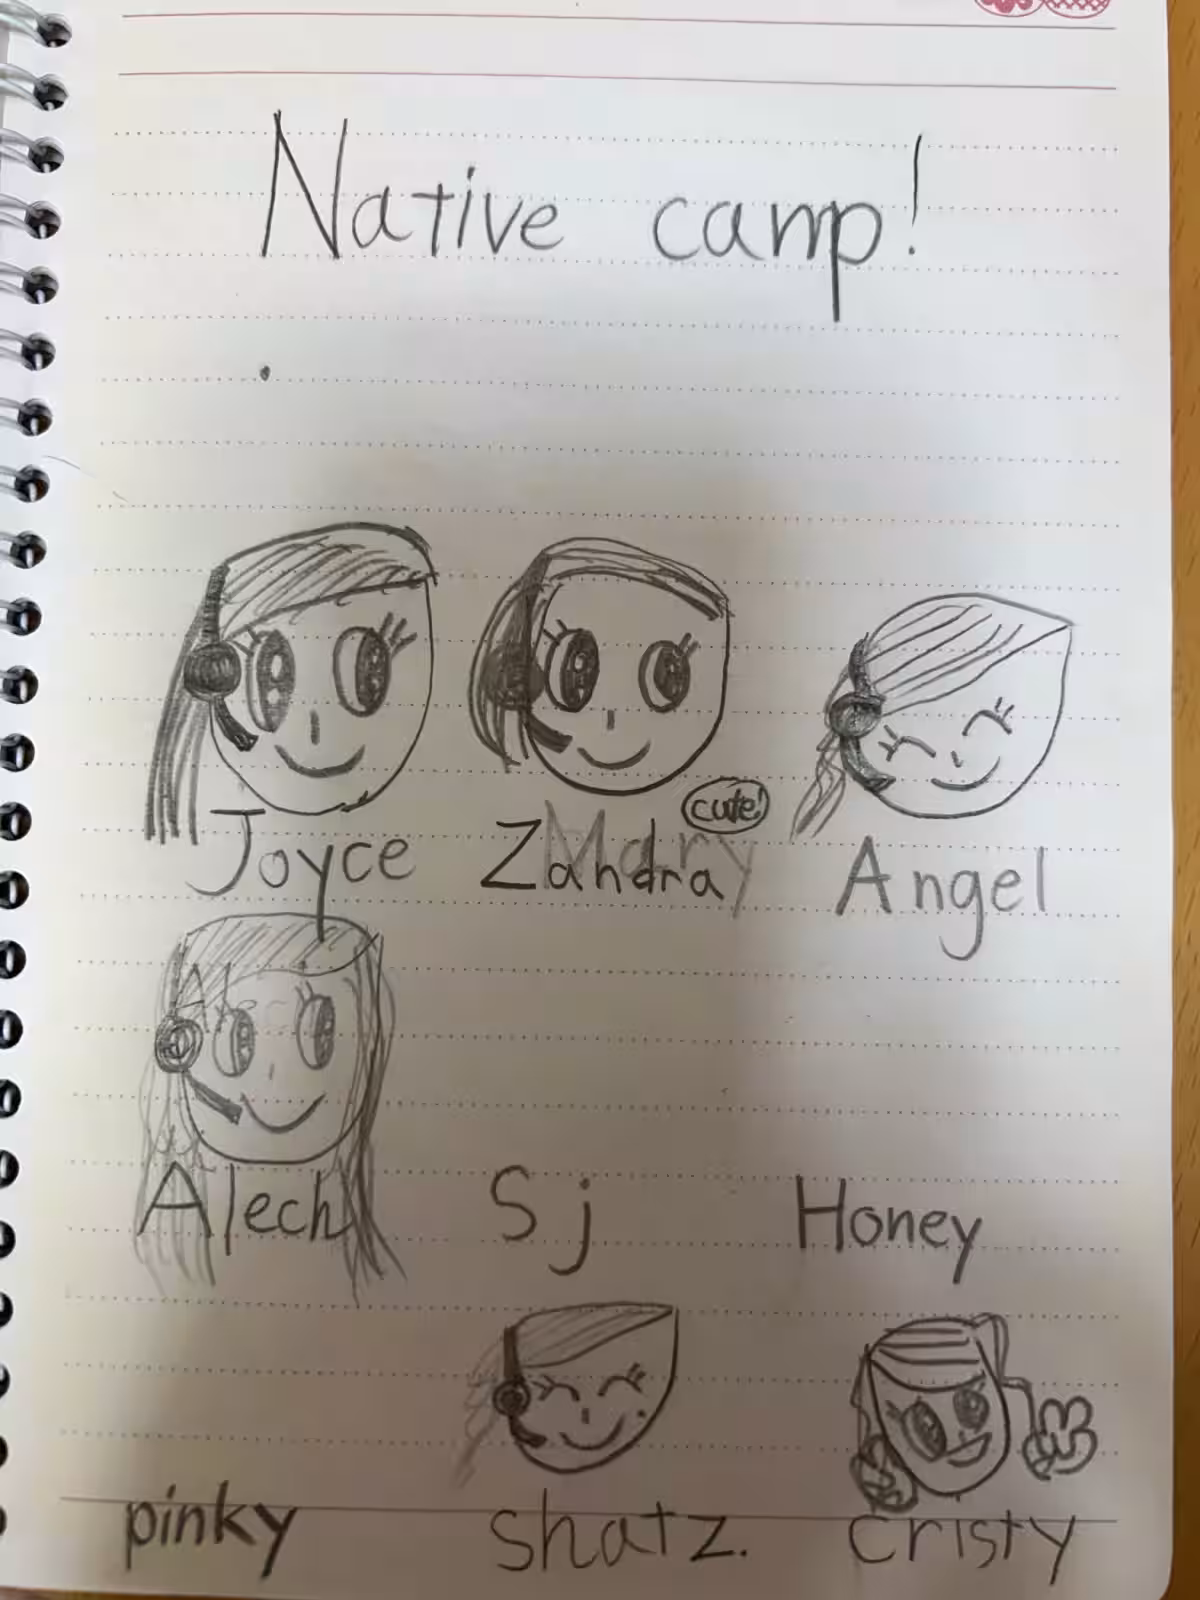 Native camp!
cute!
Joyce Zandra Angel
Alech Sj Honey
pinky shatz. cristy